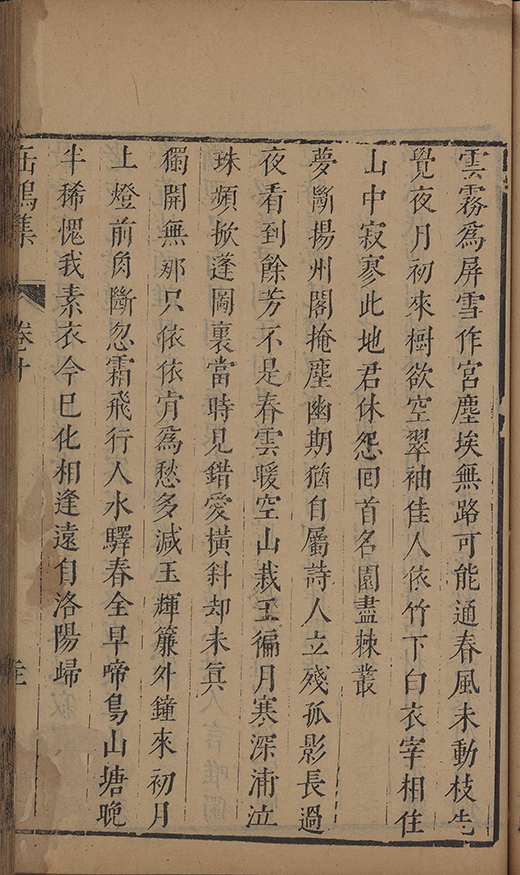 雲霧爲屏雪作宮塵埃無路可能通春風未動枝先
覺夜月初來樹欲空翠袖佳人依竹下白衣宰相住
山中寂寥此地君休怨回首名園盡棘叢
夢斷揚州閣掩塵幽期猶自屬詩人立殘孤影長過
夜看到餘芳不是春雲暖空山裁玉徧月寒深浦泣
珠頻掀蓬圖裏當時見錯愛橫斜却未眞
獨開無那只依依肯爲愁多減玉輝簾外鐘來初月
上燈前角斷忽霜飛行人水驛春全早啼鳥山塘晚
半稀愧我素衣今已化相逢遠自洛陽歸
缶鳴集
卷十